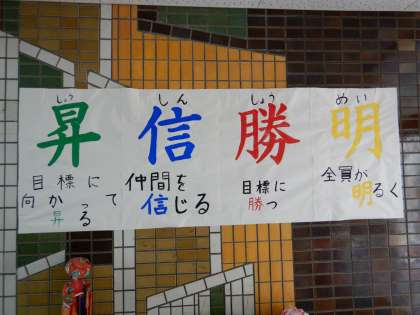 しょう
昇
目標に
向かって
昇る
しん
信
仲間を
信じる
しょう
勝
目標に
勝つ
めい
明
全員が
明るく